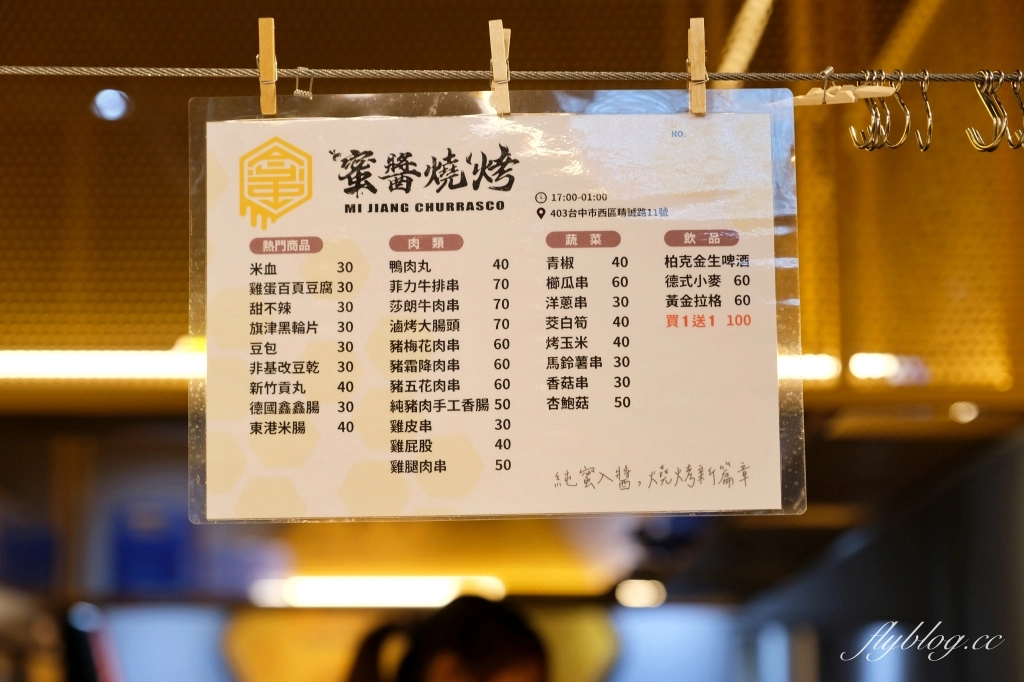 NO.
蜜醬燒烤
MI JIANG CHURRASCO
17:00-01:00
403台中市西區精誠路11號
熱門商品
米血 30
雞蛋百頁豆腐 30
甜不辣 30
旗津黑輪片 30
豆包 30
非基改豆乾 30
新竹貢丸 40
德國鑫鑫腸 30
東港米腸 40
肉 類
鴨肉丸 40
菲力牛排串 70
莎朗牛肉串 70
滷烤大腸頭 70
豬梅花肉串 60
豬霜降肉串 60
豬五花肉串 60
純豬肉手工香腸 50
雞皮串 30
雞屁股 40
雞腿肉串 50
蔬 菜
青椒 40
櫛瓜串 60
洋蔥串 30
茭白筍 40
烤玉米 40
馬鈴薯串 30
香菇串 30
杏鮑菇 50
飲 品
柏克金生啤酒
德式小麥 60
黃金拉格 60
買1送1 100
純蜜入醬，燒烤新篇章
flyblog.cc